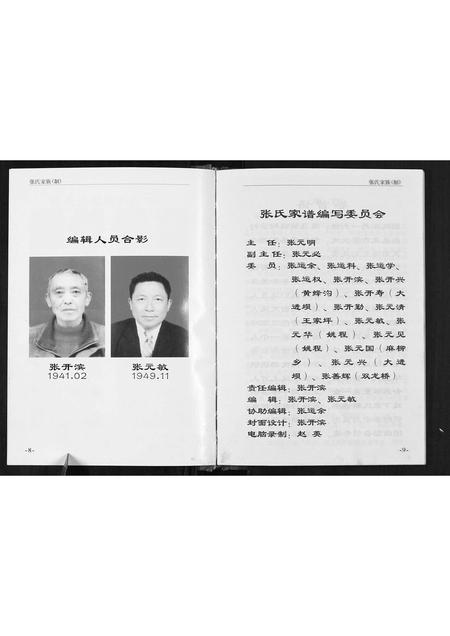 张氏家族(制)
编辑人员合影
张开滨
1941.02
张元敏
1949.11
-8-
张氏家族(制)
张氏家谱编写委员会
主　任：张元明
副主任：张元必
委　员：张运余、张运科、张运学、
张运权、张开滨、张开兴
（黄蜂沟）、张开寿（大
进坝）、张开勤、张元清
（王家坪）、张元敏、张
元华（姚程）、张元见
（姚程）、张元国（麻柳
乡）、张元兴（大进
坝）、张善辉（双龙桥）
责任编辑：张开滨
编　辑：张开滨、张元敏
协助编辑：张运余
封面设计：张开滨
电脑录制：赵　英
-9-